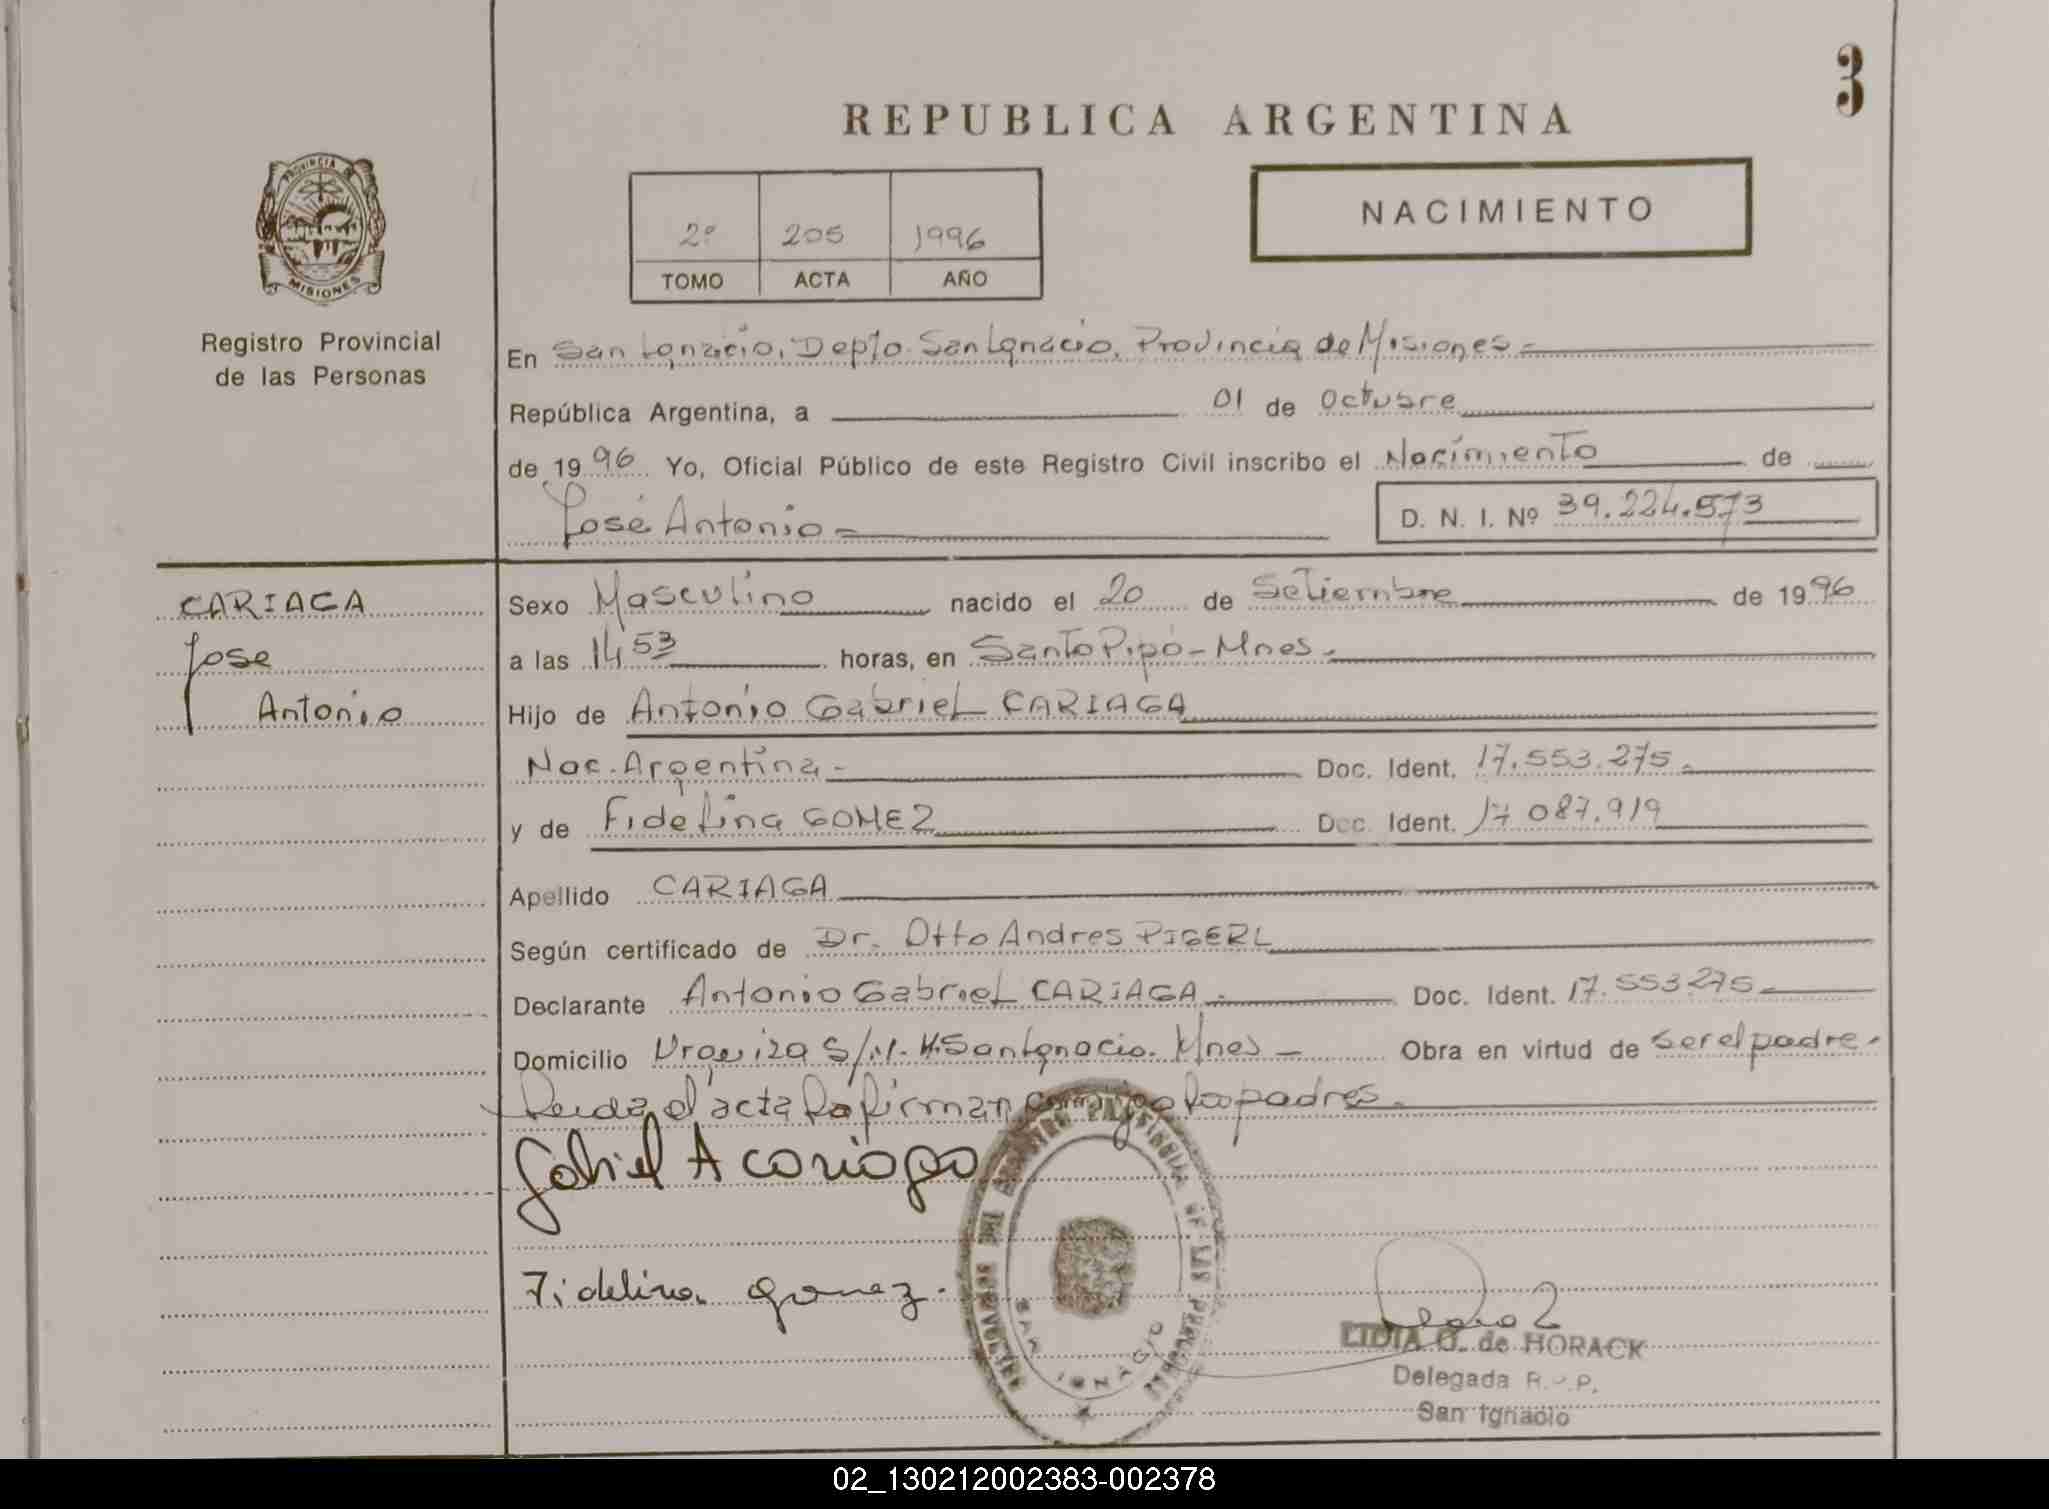 3
REPUBLICA ARGENTINA
PROVINCIA DE
MISIONES
2º 205 1996
TOMO ACTA AÑO
NACIMIENTO
Registro Provincial
de las Personas
En San Ignacio, Depto. San Ignacio, Provincia de Misiones
República Argentina, a 01 de Octubre
de 1996 Yo, Oficial Público de este Registro Civil inscribo el Nacimiento de
José Antonio
D. N. I. Nº 39.224.573
CARIAGA
Jose
Antonio
Sexo Masculino nacido el 20 de Setiembre de 1996
a las 14 53 horas, en Santo Pipó - Mnes.
Hijo de Antonio Gabriel CARIAGA
Nac. Argentina - Doc. Ident. 17.553.275
y de Fidelina GOMEZ Doc. Ident. 17 087.919
Apellido CARIAGA
Según certificado de Dr. Otto Andres PIGERL
Declarante Antonio Gabriel CARIAGA Doc. Ident. 17.553275
Domicilio Urquiza S/N. San Ignacio. Mnes - Obra en virtud de ser el padre.
Leida el acta la firman conmigo los padres.
Gabriel A Cariaga
Fidelina gomez.
REGISTRO PROVINCIAL DE LAS PERSONAS
SAN IGNACIO
LIDIA O. de HORACK
Delegada R. P.
San Ignacio
02_130212002383-002378